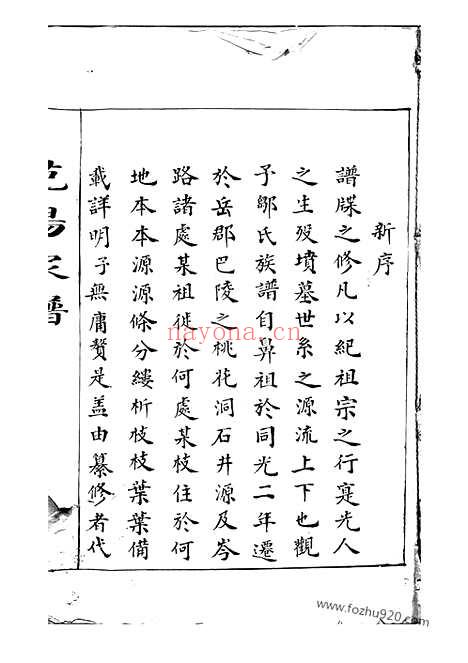 新序
譜牒之修凡以紀祖宗之行寔光人
之生歿墳墓世系之源流上下也觀
予鄒氏族譜自鼻祖於同光二年遷
於岳郡巴陵之桃花洞石井源及岑
路諸處某祖徙於何處某枝住於何
地本本源源條分縷析枝枝葉葉備
載詳明予無庸贅是盖由纂修者代
陽氏譜
nayona.cn
www.fozhu920.com